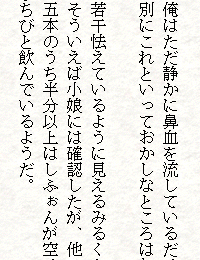 俺はただ静かに鼻血を流しているだ
別にこれといっておかしなところは
若干怯えているように見えるみるく
そういえば小娘には確認したが、他
五本のうち半分以上はしふぉんが空
ちびと飲んでいるようだ。